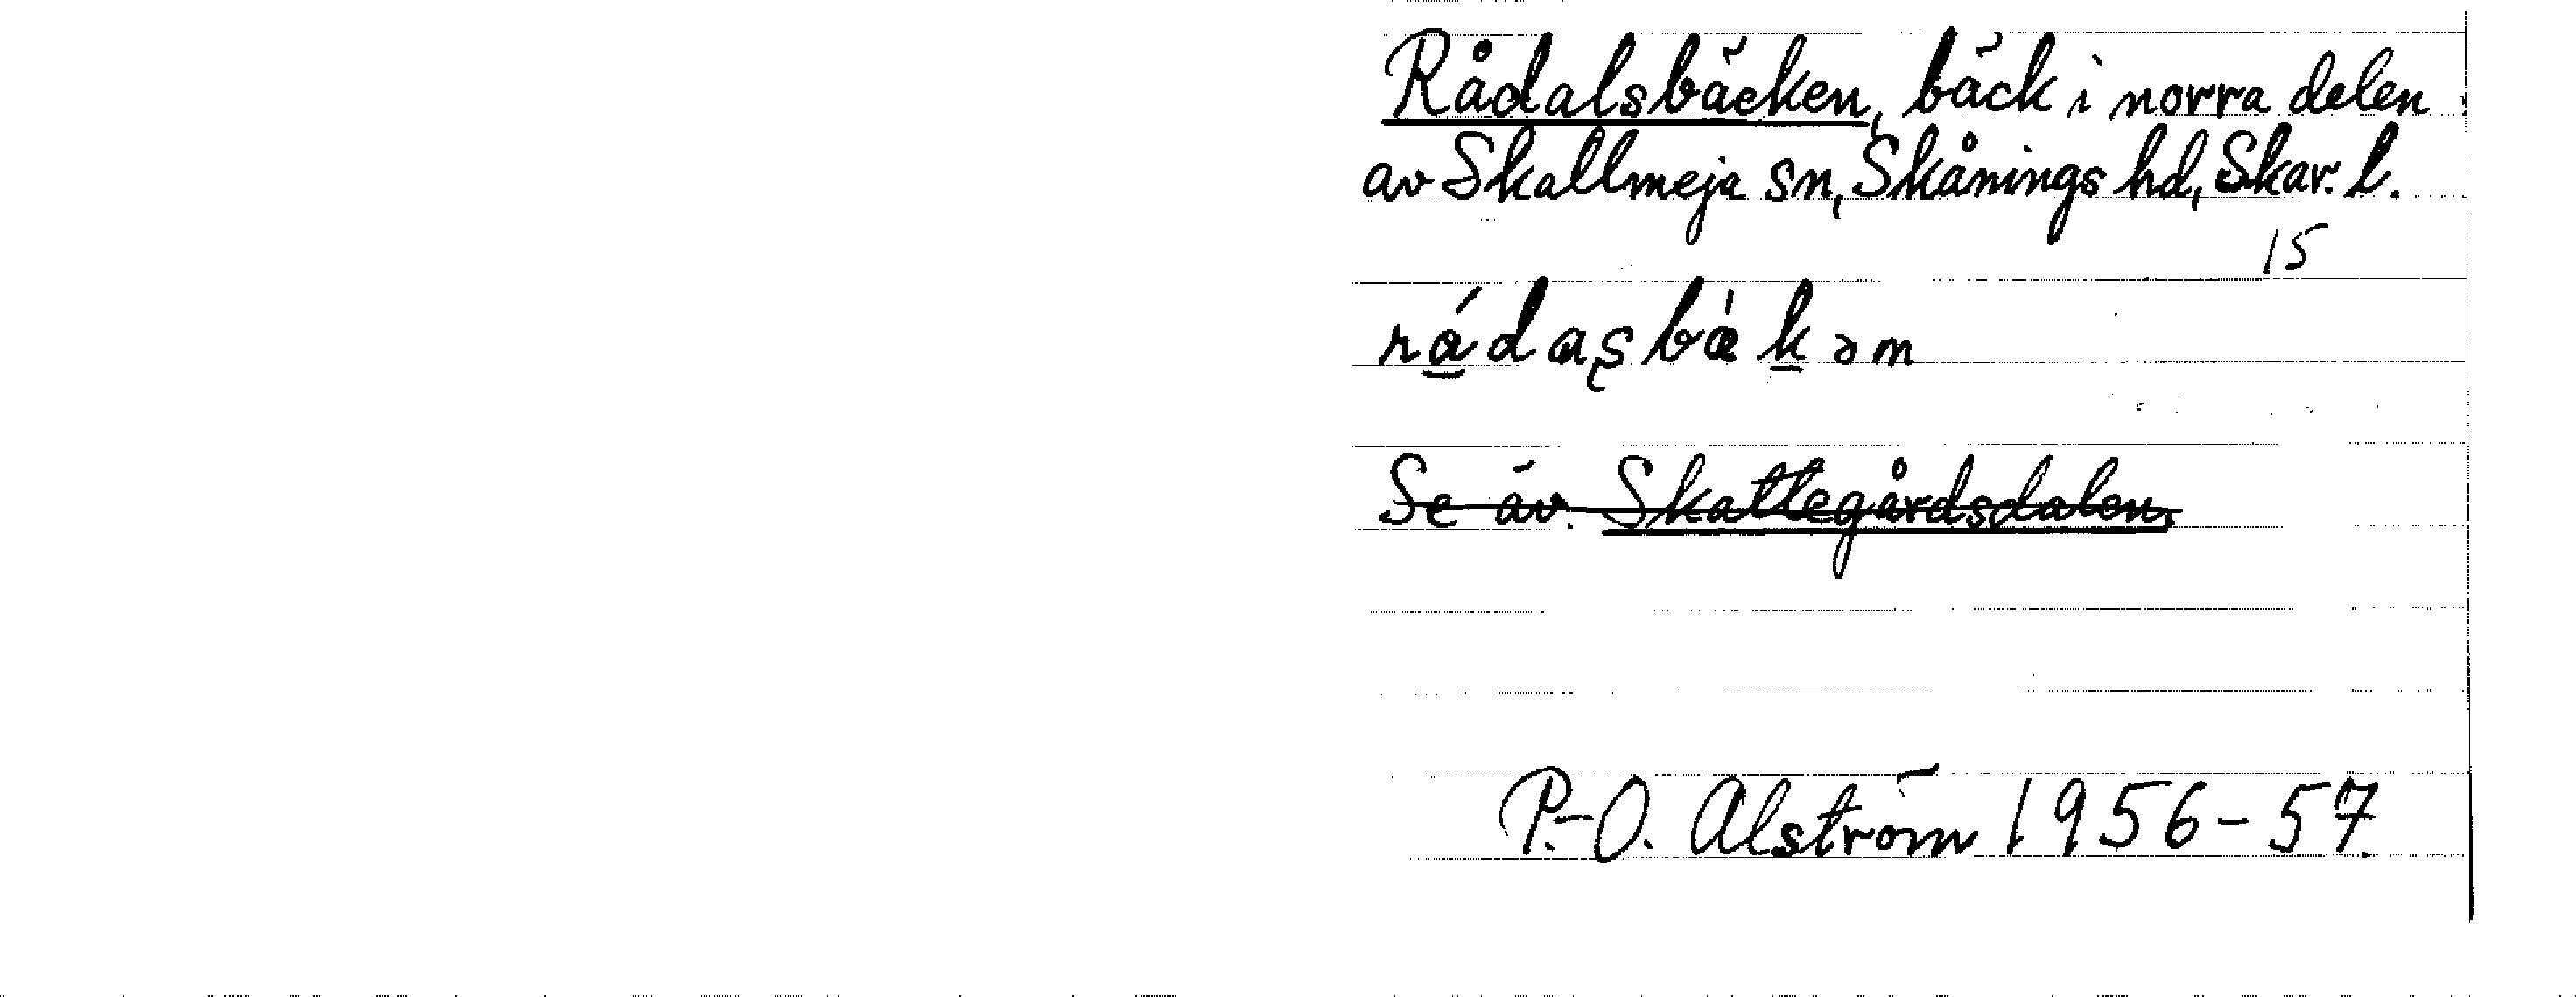 Rådalsbäcken, bäck i norra delen
av Skallmeja sn, Skånings hd, Skar. l.
15
rǻ̱dasbæ̀ḵən
Se äv. Skattegårdsdalen.
P.-O. Alström 1956-57.